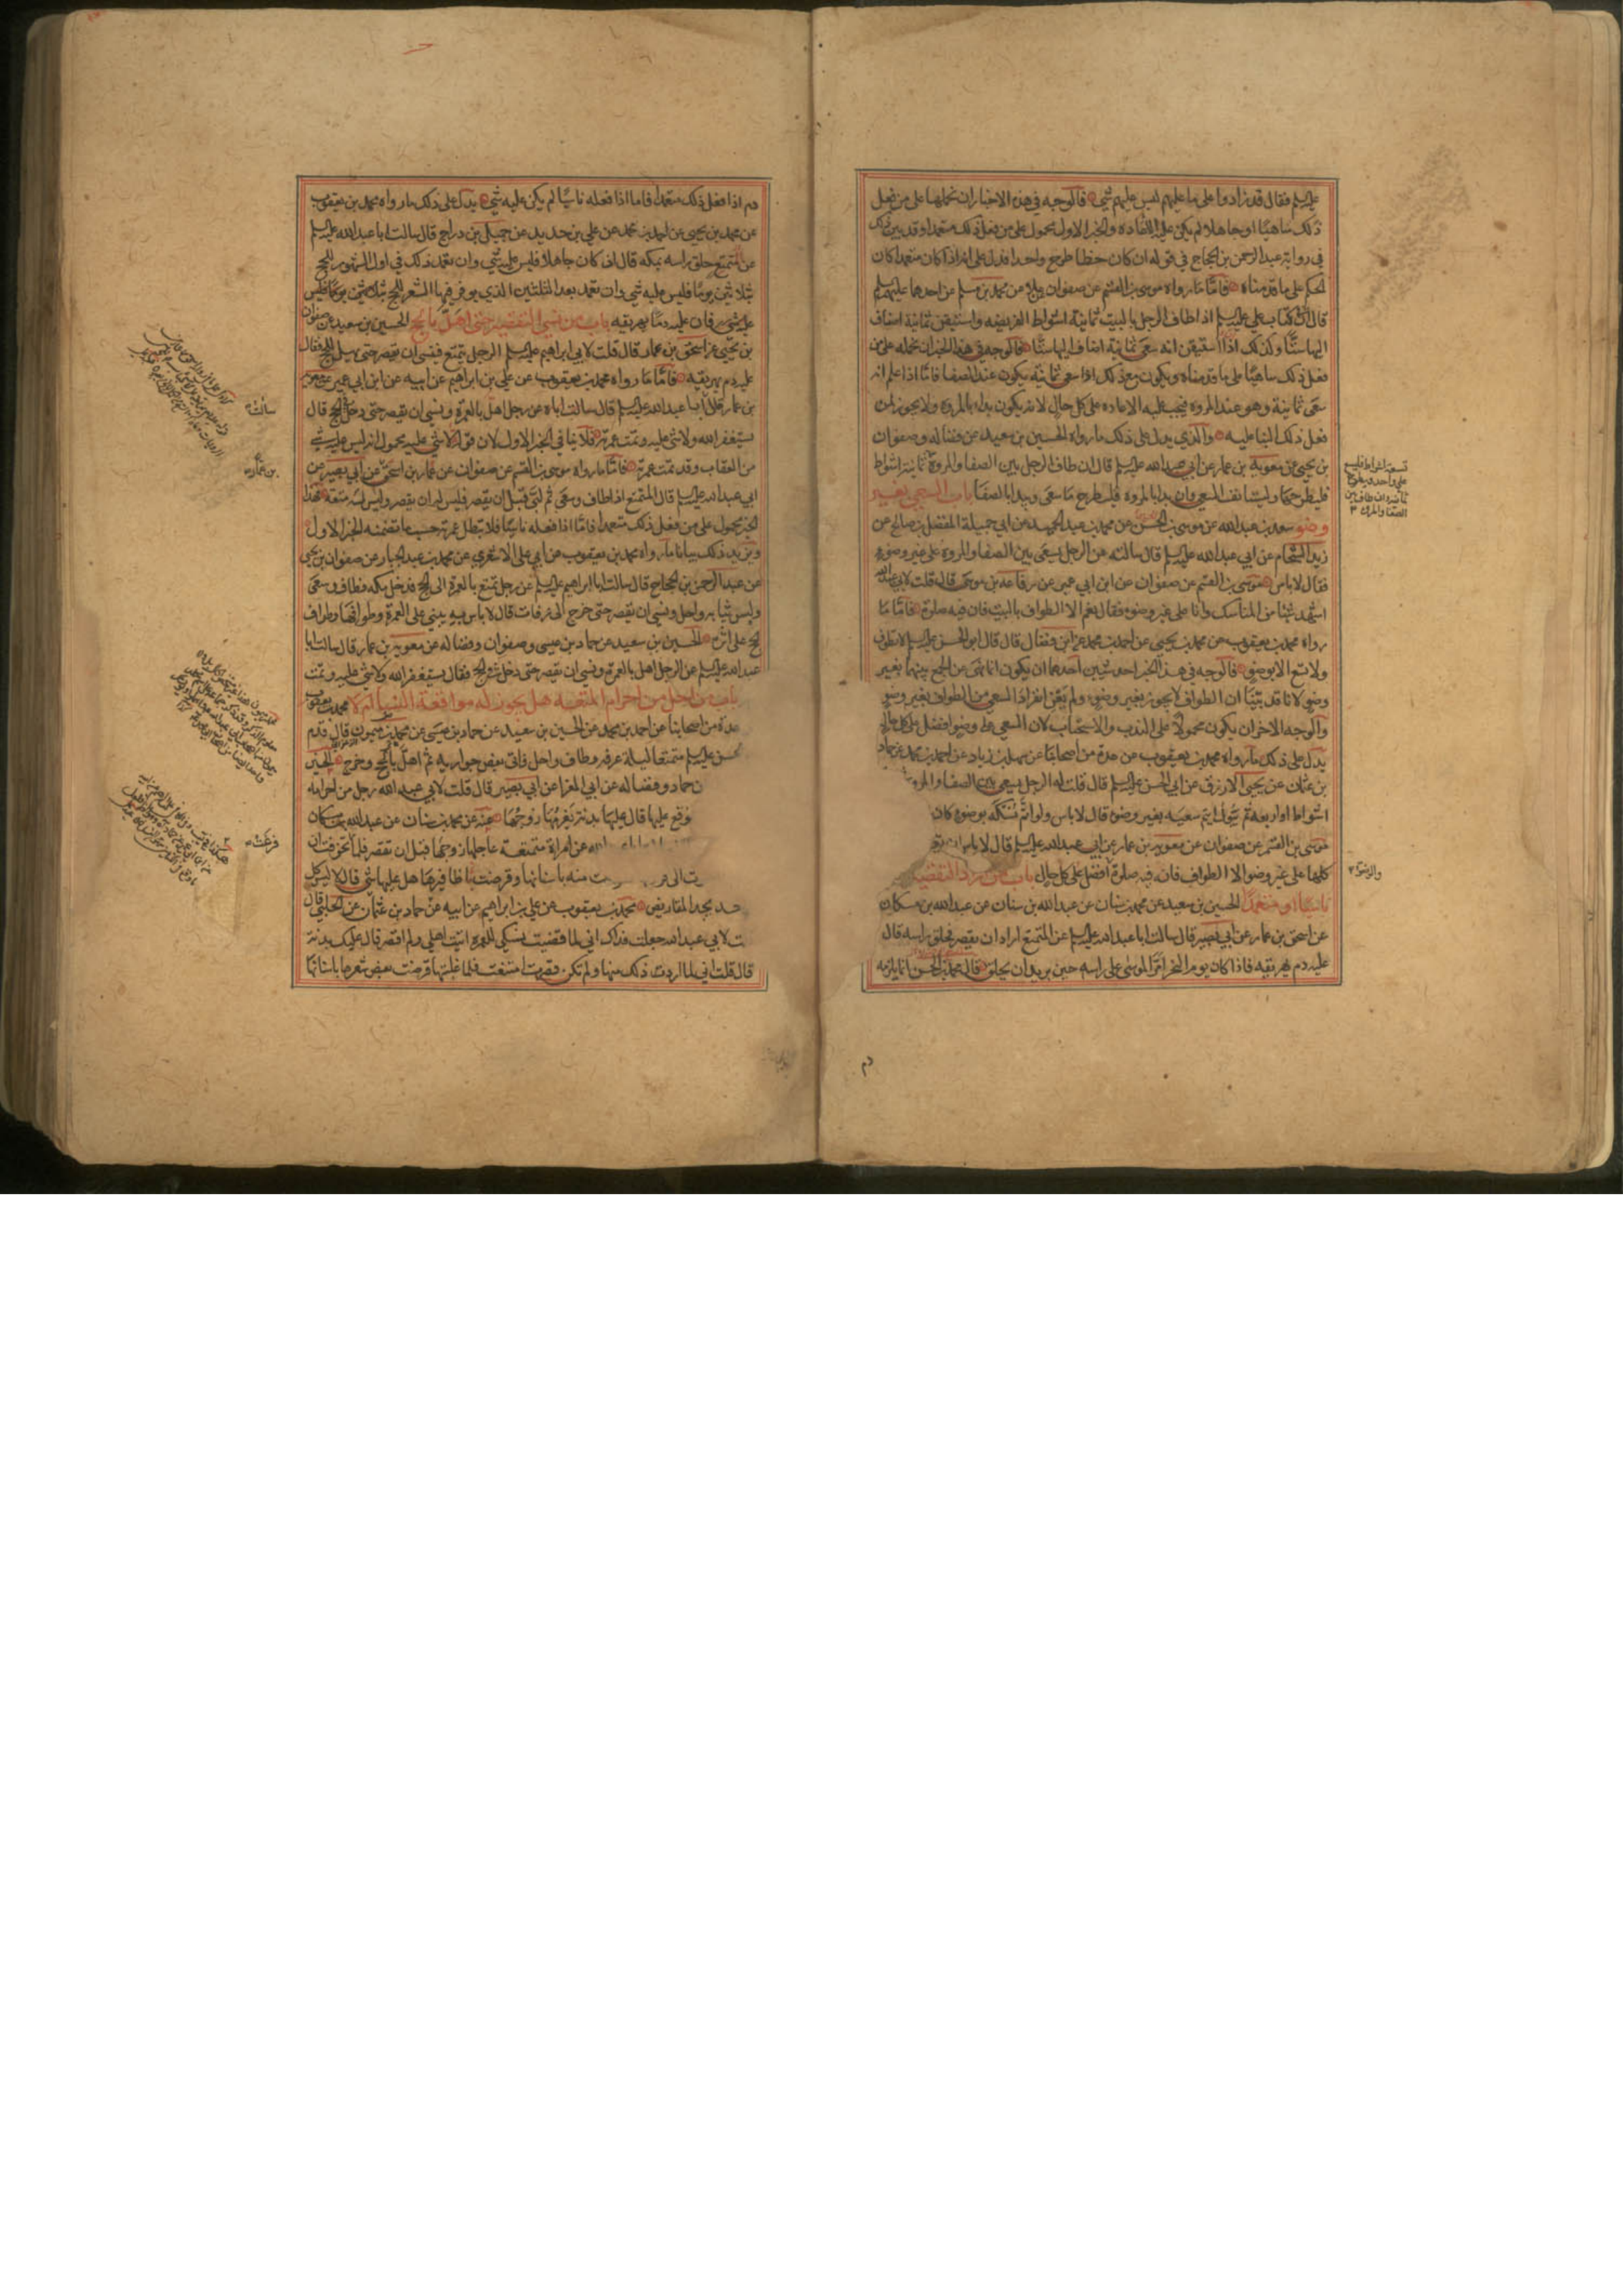 عليه السلم فقال قد زادوا على ما عليهم ليس عليهم شئ فالوجه في هذه الاخبار ان نحملها على من فعل
ذلك ساهيا او جاهلا لم يكن عليه الاعاده والخبر الاول محمول على من فعل ذلك متعمدا وقد بين ذلك
في رواية عبد الرحمن بن الحجاج في قوله ان كان خطا طرح واحدا فدل على انه اذا كان متعمدا كان
الحكم على ما قدمناه فاما ما رواه موسى بن القسم عن صفوان عن علا عن محمد بن مسلم عن احدهما عليهما السلم
قال ان في كتاب علي عليه السلم اذا طاف الرجل بالبيت ثمانية اشواط الفريضه واستيقن ثمانية اضاف
اليها ستا وكذلك اذا استيقن انه سعى ثمانية اضاف اليها ستا فالوجه في هذا الخبر ان نحمله على من
فعل ذلك ساهيا على ما قدمناه ويكون مع ذلك اذا سعى ثمانية يكون عند الصفا فاما اذا علم انه
سعى ثمانية وهو عند المروه فيجب عليه الاعاده على كل حال لانه يكون بداء بالمروه ولا يجوز لمن
فعل ذلك البنا عليه والذي يدل على ذلك ما رواه الحسين بن سعيد عن فضاله وصفوان
بن يحيى عن معوية بن عمار عن ابي عبد الله عليه السلم قال ان طاف الرجل بين الصفا والمروة ثمانية اشواط
فليطرحها وليستانف السعي وان بدا بالمروه فليطرح ما سعى ويبدا بالصفا باب السعي بغير
وضو سعد بن عبد الله عن موسى بن الحسن عن محمد بن عبد الحميد عن ابي جميلة المفضل بن صالح عن
زيد الشحام عن ابي عبد الله عليه السلم قال سالته عن الرجل يسعى بين الصفا والمروه على غير وضوء
فقال لاباس موسى بن القسم عن صفوان عن ابن ابي عمير عن رفاعه بن موسى قال قلت لابي عبد الله
اشهد شيئا من المناسك وانا على غير وضوء فقال نعم الا الطواف بالبيت فان فيه صلوة فاما ما
رواه محمد بن يعقوب عن محمد بن يحيى عن احمد بن محمد عن ابن فضال قال قال ابو الحسن عليه السلم لا تطوف
ولا تسع الا بوضو فالوجه في هذا الخبر احد شيئين احدهما ان يكون انما نهى عن الجمع بينهما بغير
وضو لانا قد بينا ان الطواف لا يجوز بغير وضوء ولم يعن انفراد السعي من الطواف بغير وضو
والوجه الاخر ان يكون محمولا على الندب والاستحباب لان السعي على وضوء افضل على كل حال
يدل على ذلك ما رواه محمد بن يعقوب عن عدة من اصحابنا عن سهل بن زياد عن احمد بن محمد عن حماد
بن عثمان عن يحيى الازرق عن ابي الحسن عليه السلم قال قلت له الرجل يسعى بين الصفا والمروه
اشواط او اربعه ثم يبول ايتم سعيه بغير وضوء قال لاباس ولو اتم نسكه بوضوء كان
موسى بن القسم عن صفوان عن معوية بن عمار عن ابي عبد الله عليه السلم قال لاباس ان
كلها على غير وضوء الا الطواف فان فيه صلوة افضل على كل حال باب من اراد التقصير
ناسيا او متعمدا الحسين بن سعيد عن محمد بن سنان عن عبد الله بن سنان عن عبد الله بن مسكان
عن اسحق بن عمار عن ابي بصير قال سالت ابا عبد الله عليه السلم عن المتمتع اراد ان يقصر فحلق راسه قال
عليه دم يهريقه فاذا كان يوم النحر امر الموسى على راسه حين يريد ان يحلق قال محمد بن الحسن انما يلزمه
تسعة اشواط فليسع
على واحد ويطرح
ثمانيه وان طاف بين
الصفا والمروه
والوضوء
دم
دم اذا فعل ذلك متعمدا فاما اذا فعله ناسيا لم يكن عليه شئ يدل على ذلك ما رواه محمد بن يعقوب
عن محمد بن يحيى عن احمد بن محمد عن علي بن حديد عن جميل بن دراج قال سالت ابا عبد الله عليه السلم
عن المتمتع حلق راسه بمكه قال ان كان جاهلا فليس عليه شئ وان تعمد ذلك في اول الشهور للحج
بثلاثين يوما فليس عليه شئ وان تعمد بعد الثلثين الذي يوفر فيها الشعر للحج ثلاثين يوما فليس
عليه شئ فان عليه دما يهريقه باب من نسي التقصير حتى اهل بالحج الحسين بن سعيد عن صفوان
بن يحيى عن اسحق بن عمار قال قلت لابي ابراهيم عليه السلم الرجل يتمتع فنسى ان يقصر حتى يهل بالحج فقال
عليه دم يهريقه فاما ما رواه محمد بن يعقوب عن علي بن ابراهيم عن ابيه عن ابن ابي عمير عن معوية
بن عمار عن ابي عبد الله عليه السلم قال سالت اباه عن رجل اهل بالعمرة ونسي ان يقصر حتى دخل في الحج قال
يستغفر الله ولا شئ عليه وتمت عمرته فلا ينافي الخبر الاول لان قوله لا شئ عليه محمول انه ليس عليه شئ
من العقاب وقد تمت عمرته فاما ما رواه موسى بن القسم عن صفوان عن عمار بن اسحق عن ابي بصير عن
ابي عبد الله عليه السلم قال المتمتع اذا طاف وسعى ثم لبى قبل ان يقصر فليس له ان يقصر وليس له متعة فهذا
الخبر محمول على من فعل ذلك متعمدا فاما اذا فعله ناسيا فلا تبطل عمرته حسب ما تضمنه الخبر الاول
ويزيد ذلك بيانا ما رواه محمد بن يعقوب عن ابي علي الاشعري عن محمد بن عبد الجبار عن صفوان بن يحيى
عن عبد الرحمن بن الحجاج قال سالت ابا ابراهيم عليه السلم عن رجل تمتع بالعمرة الى الحج فدخل مكه فطاف وسعى
ولبس ثيابه واحل ونسي ان يقصر حتى خرج الى عرفات قال لاباس به يبني على العمرة وطوافها وطواف
الحج على اثره الحسين بن سعيد عن حماد بن عيسى وصفوان وفضاله عن معوية بن عمار قال سالت ابا
عبد الله عليه السلم عن الرجل اهل بالعمرة ونسي ان يقصر حتى دخل في الحج فقال يستغفر الله ولا شئ عليه وتمت
باب من احل من احرام المتعه هل يجوز له مواقعة النساء ام لا محمد بن يعقوب
عدة من اصحابنا عن احمد بن محمد عن الحسين بن سعيد عن حماد بن عيسى عن محمد بن ميمون قال قدم
الحسن عليه السلم متمتعا ليلة عرفه وطاف واحل واتى بعض جواريه ثم اهل بالحج وخرج الحسين
بن حماد وفضاله عن ابي المغرا عن ابي بصير قال قلت لابي عبد الله رجل من احرامه
وقع عليها قال عليها بدنة يغرمها زوجها عنه عن محمد بن سنان عن عبد الله بن مسكان
عن امراة متمتعة عاجلها زوجها قبل ان تقصر فلما تخوفت ان
منه باسنانها وقرضت باظافيرها هل عليها شئ قال لا ليس كل
احد يجد المقاريض محمد بن يعقوب عن علي بن ابراهيم عن ابيه عن حماد بن عثمان عن الحلبي قال
قلت لابي عبد الله جعلت فداك اني لما قضيت نسكي للعمره اتيت اهلي ولم اقصر قال عليك بدنة
قال قلت اني لما اردت ذلك منها ولم تكن قصرت امتنعت فلما غلبتها قرضت بعض شعرها باسنانها
سالته
بن عمار